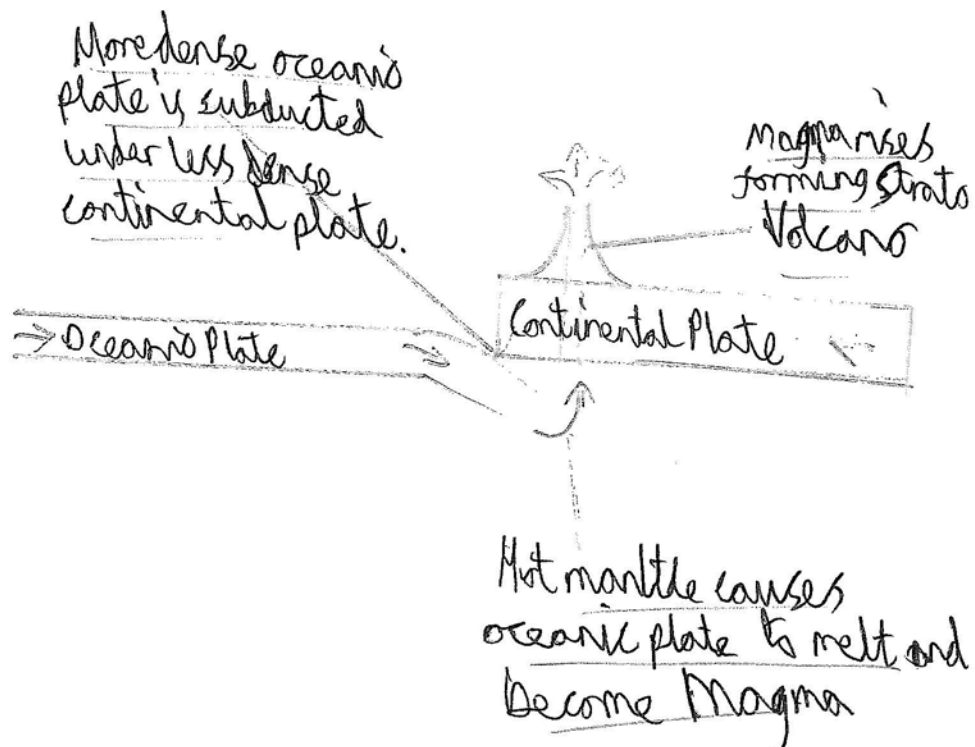 More dense oceanic
plate is subducted
under less dense
continental plate.
magma rises
forming strato
Volcano
Oceanic Plate
Continental Plate
Hot mantle causes
oceanic plate to melt and
become Magma